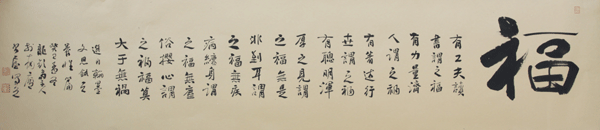 福
有工夫讀
書謂之福
有力量濟
人謂之福
有著述行
世謂之福
有聰明渾
厚之見謂
之福無是
非到耳謂
之福無疾
病纏身謂
之福無塵
俗攖心謂
之福福莫
大于無禍